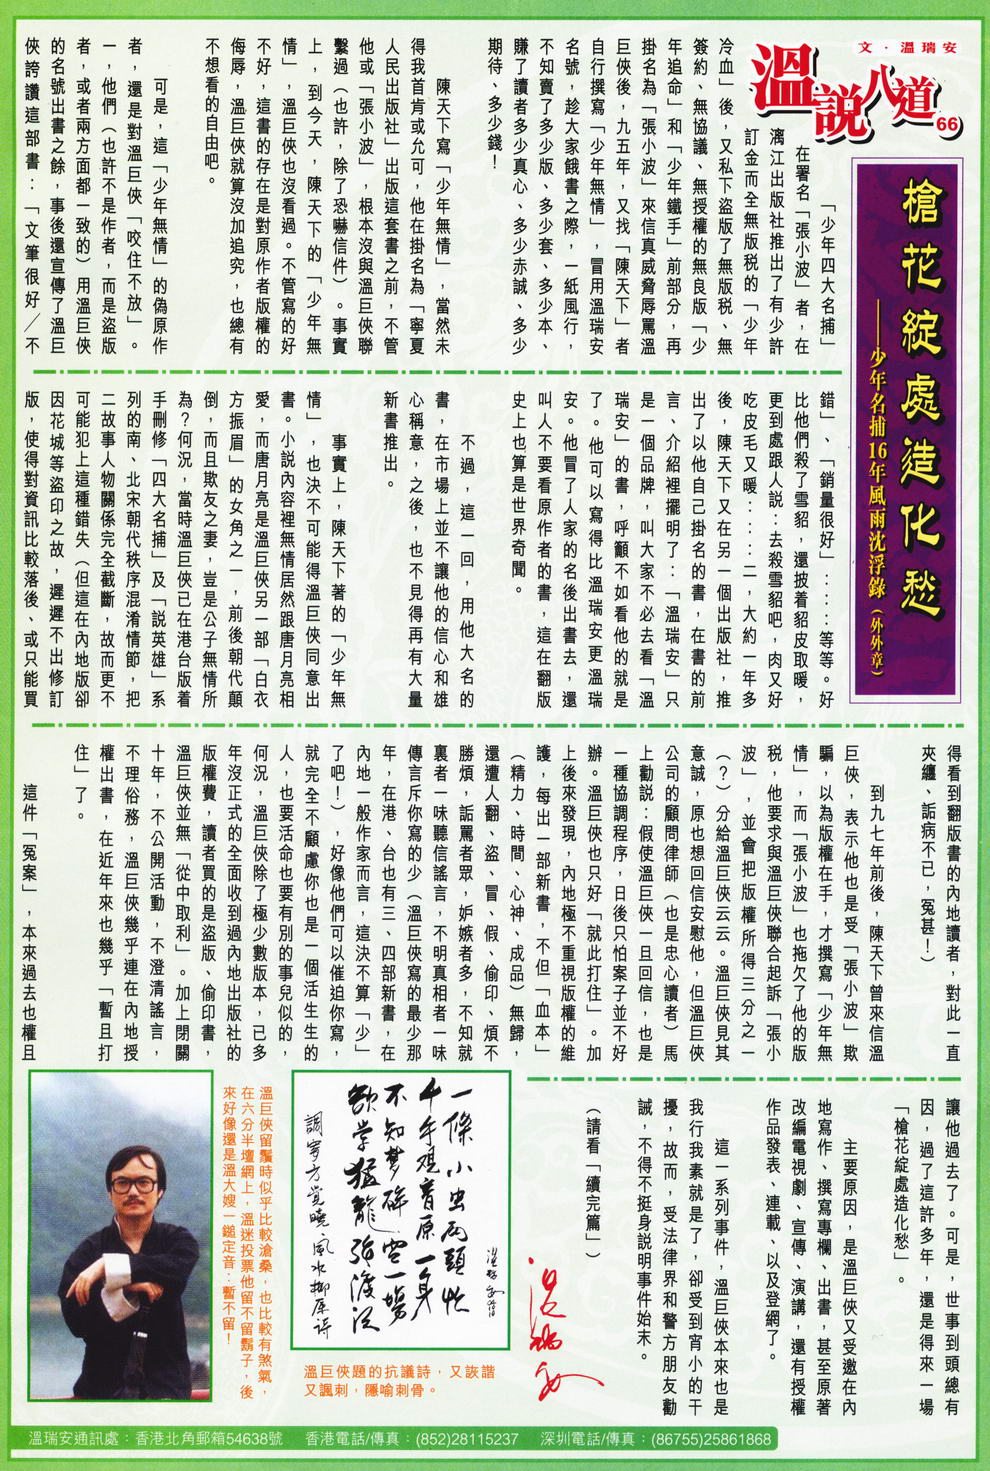 文·溫瑞安
溫說八道66
槍花綻處造化愁
——少年名捕16年風雨沈浮錄（外外章）
「少年四大名捕」
在署名「張小波」者，在
漓江出版社推出了有少許
訂金而全無版税的「少年
冷血」後，又私下盜版了無版税、無
簽約、無協議、無授權的無良版「少
年追命」和「少年鐵手」前部分，再
掛名為「張小波」來信真威脅辱罵溫
巨俠後，九五年，又找「陳天下」者
自行撰寫「少年無情」，冒用溫瑞安
名號，趁大家餓書之際，一紙風行，
不知賣了多少版、多少套、多少本、
賺了讀者多少真心、多少赤誠、多少
期待、多少錢！
陳天下寫「少年無情」，當然未
得我首肯或允可，他在掛名為「寧夏
人民出版社」出版這套書之前，不管
他或「張小波」，根本沒與溫巨俠聯
繫過（也許，除了恐嚇信件）。事實
上，到今天，陳天下的「少年無
情」，溫巨俠也沒看過。不管寫的好
不好，這書的存在是對原作者版權的
侮辱，溫巨俠就算沒加追究，也總有
不想看的自由吧。
可是，這「少年無情」的偽原作
者，還是對溫巨俠「咬住不放」。
一，他們（也許不是作者，而是盜版
者，或者兩方面都一致的）用溫巨俠
的名號出書之餘，事後還宣傳了溫巨
俠誇讚這部書：「文筆很好／不
錯」、「銷量很好」：：：等等。好
比他們殺了雪貂，還披着貂皮取暖，
更到處跟人說：去殺雪貂吧，肉又好
吃皮毛又暖：：：二，大約一年多
後，陳天下又在另一個出版社，推
出了以他自己掛名的書，在書的前
言、介紹裡擺明了：「溫瑞安」只
是一個品牌，叫大家不必去看「溫
瑞安」的書，呼籲不如看他的就是
了。他可以寫得比溫瑞安更溫瑞
安。他冒了人家的名後出書去，還
叫人不要看原作者的書，這在翻版
史上也算是世界奇聞。
不過，這一回，用他大名的
書，在市場上並不讓他的信心和雄
心稱意，之後，也不見得再有大量
新書推出。
事實上，陳天下著的「少年無
情」，也決不可能得溫巨俠同意出
書。小説內容裡無情居然跟唐月亮相
愛，而唐月亮是溫巨俠另一部「白衣
方振眉」的女角之一，前後朝代顛
倒，而且欺友之妻，豈是公子無情所
為？何況，當時溫巨俠已在港台版着
手刪修「四大名捕」及「説英雄」系
列的南、北宋朝代秩序混淆情節，把
二故事人物關係完全截斷，故而更不
可能犯上這種錯失（但這在內地版卻
因花城等盜印之故，遲遲不出修訂
版，使得對資訊比較落後、或只能買
得看到翻版書的內地讀者，對此一直
夾纏、詬病不已，冤甚！）
到九七年前後，陳天下曾來信溫
巨俠，表示他也是受「張小波」欺
騙，以為版權在手，才撰寫「少年無
情」，而「張小波」也拖欠了他的版
税，他要求與溫巨俠聯合起訴「張小
波」，並會把版權所得三分之一
（？）分給溫巨俠云云。溫巨俠見其
意誠，原也想回信安慰他，但溫巨俠
公司的顧問律師（也是忠心讀者）馬
上勸説：假使溫巨俠一旦回信，也是
一種協調程序，日後只怕案子並不好
辦。溫巨俠也只好「就此打住」。加
上後來發現，內地極不重視版權的維
護，每出一部新書，不但「血本」
（精力、時間、心神、成品）無歸，
還遭人翻、盜、冒、假、偷印、煩不
勝煩，詬罵者眾，妒嫉者多，不知就
裏者一味聽信謠言，不明真相者一味
傳言斥你寫的少（溫巨俠寫的最少那
年，在港、台也有三、四部新書，在
內地一般作家而言，這決不算「少」
了吧！），好像他們可以催迫你寫，
就完全不顧慮你也是一個活生生的
人，也要活命也要有別的事兒似的，
何況，溫巨俠除了極少數版本，已多
年沒正式的全面收到過內地出版社的
版權費，讀者買的是盜版、偷印書，
溫巨俠並無「從中取利」。加上閉關
十年，不公開活動，不澄清謠言，
不理俗務，溫巨俠幾乎連在內地授
權出書，在近年來也幾乎「暫且打
住」了。
這件「冤案」，本來過去也權且
讓他過去了。可是，世事到頭總有
因，過了這許多年，還是得來一場
「槍花綻處造化愁」。
主要原因，是溫巨俠又受邀在內
地寫作、撰寫專欄、出書，甚至原著
改編電視劇、宣傳、演講，還有授權
作品發表、連載、以及登網了。
這一系列事件，溫巨俠本來也是
我行我素就是了，卻受到宵小的干
擾，故而，受法律界和警方朋友勸
誡，不得不挺身説明事件始末。
（請看「續完篇」）
溫瑞安
一條小虫兩頭忙
千手觀音原一身
不知夢醉空一場
欲學猛龍強渡江
調寄方覺曉·風水楊屎詩
溫瑞安
溫巨俠題的抗議詩，又詼諧
又諷刺，隱喻刺骨。
溫巨俠留鬚時似乎比較滄桑，也比較有煞氣，
在六分半壇網上，溫迷投票他留不留鬍子，後
來好像還是溫大嫂一鎚定音：暫不留！
溫瑞安通訊處：香港北角郵箱54638號　香港電話/傳真：(852)28115237　深圳電話/傳真：(86755)25861868